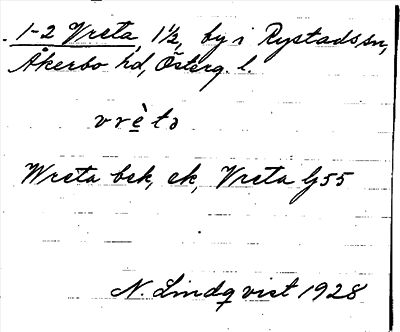 1-2 Vreta, 1 1/2, by i Rystads sn,
Åkerbo hd, Österg. l.
vrè̠tə
Wreta bek, ek, Vreta G55
N. Lindqvist 1928